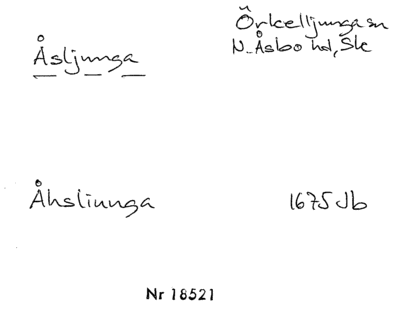 Åsljunga
Örkelljunga sn
N. Åsbo hd, Sk
Åhsliunga
1675 Jb
Nr 18521